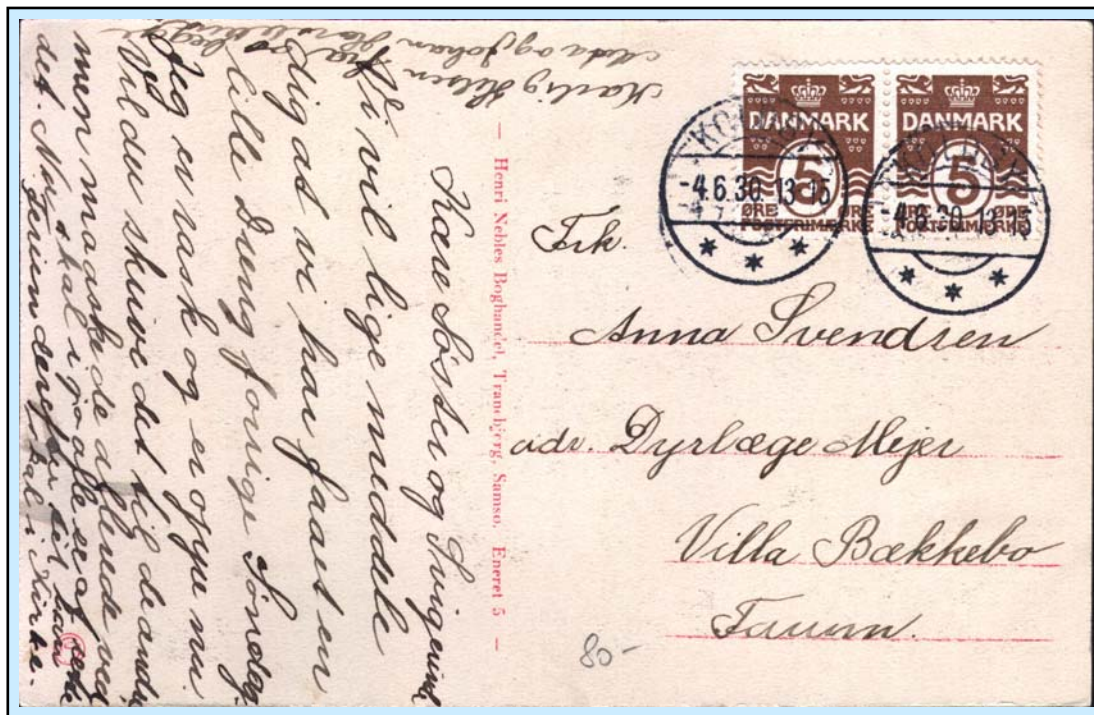 DANMARK
5
ØRE ØRE
POSTFRIMÆRKE
DANMARK
5
ØRE ØRE
POSTFRIMÆRKE
-4.6.30.13-15
-4.6.30.13-15
Frk.
Anna Svendsen
adr. Dyrlæge Mejer
Villa Bækkebo
80-
— Henri Nebles Boghandel, Tranebjerg, Samsø. Eneret 5 —
Kære Søster og
Vi vil lige meddele
dig at vi har faaet en
lille Dreng forrige Søndag.
Jeg er rask og er oppe nu.
Vil du skrive det til de andre
men maaske de allerede ved
det. Nu skal i
Kirke.
Kærlig Hilsen fra
Meta og Johan